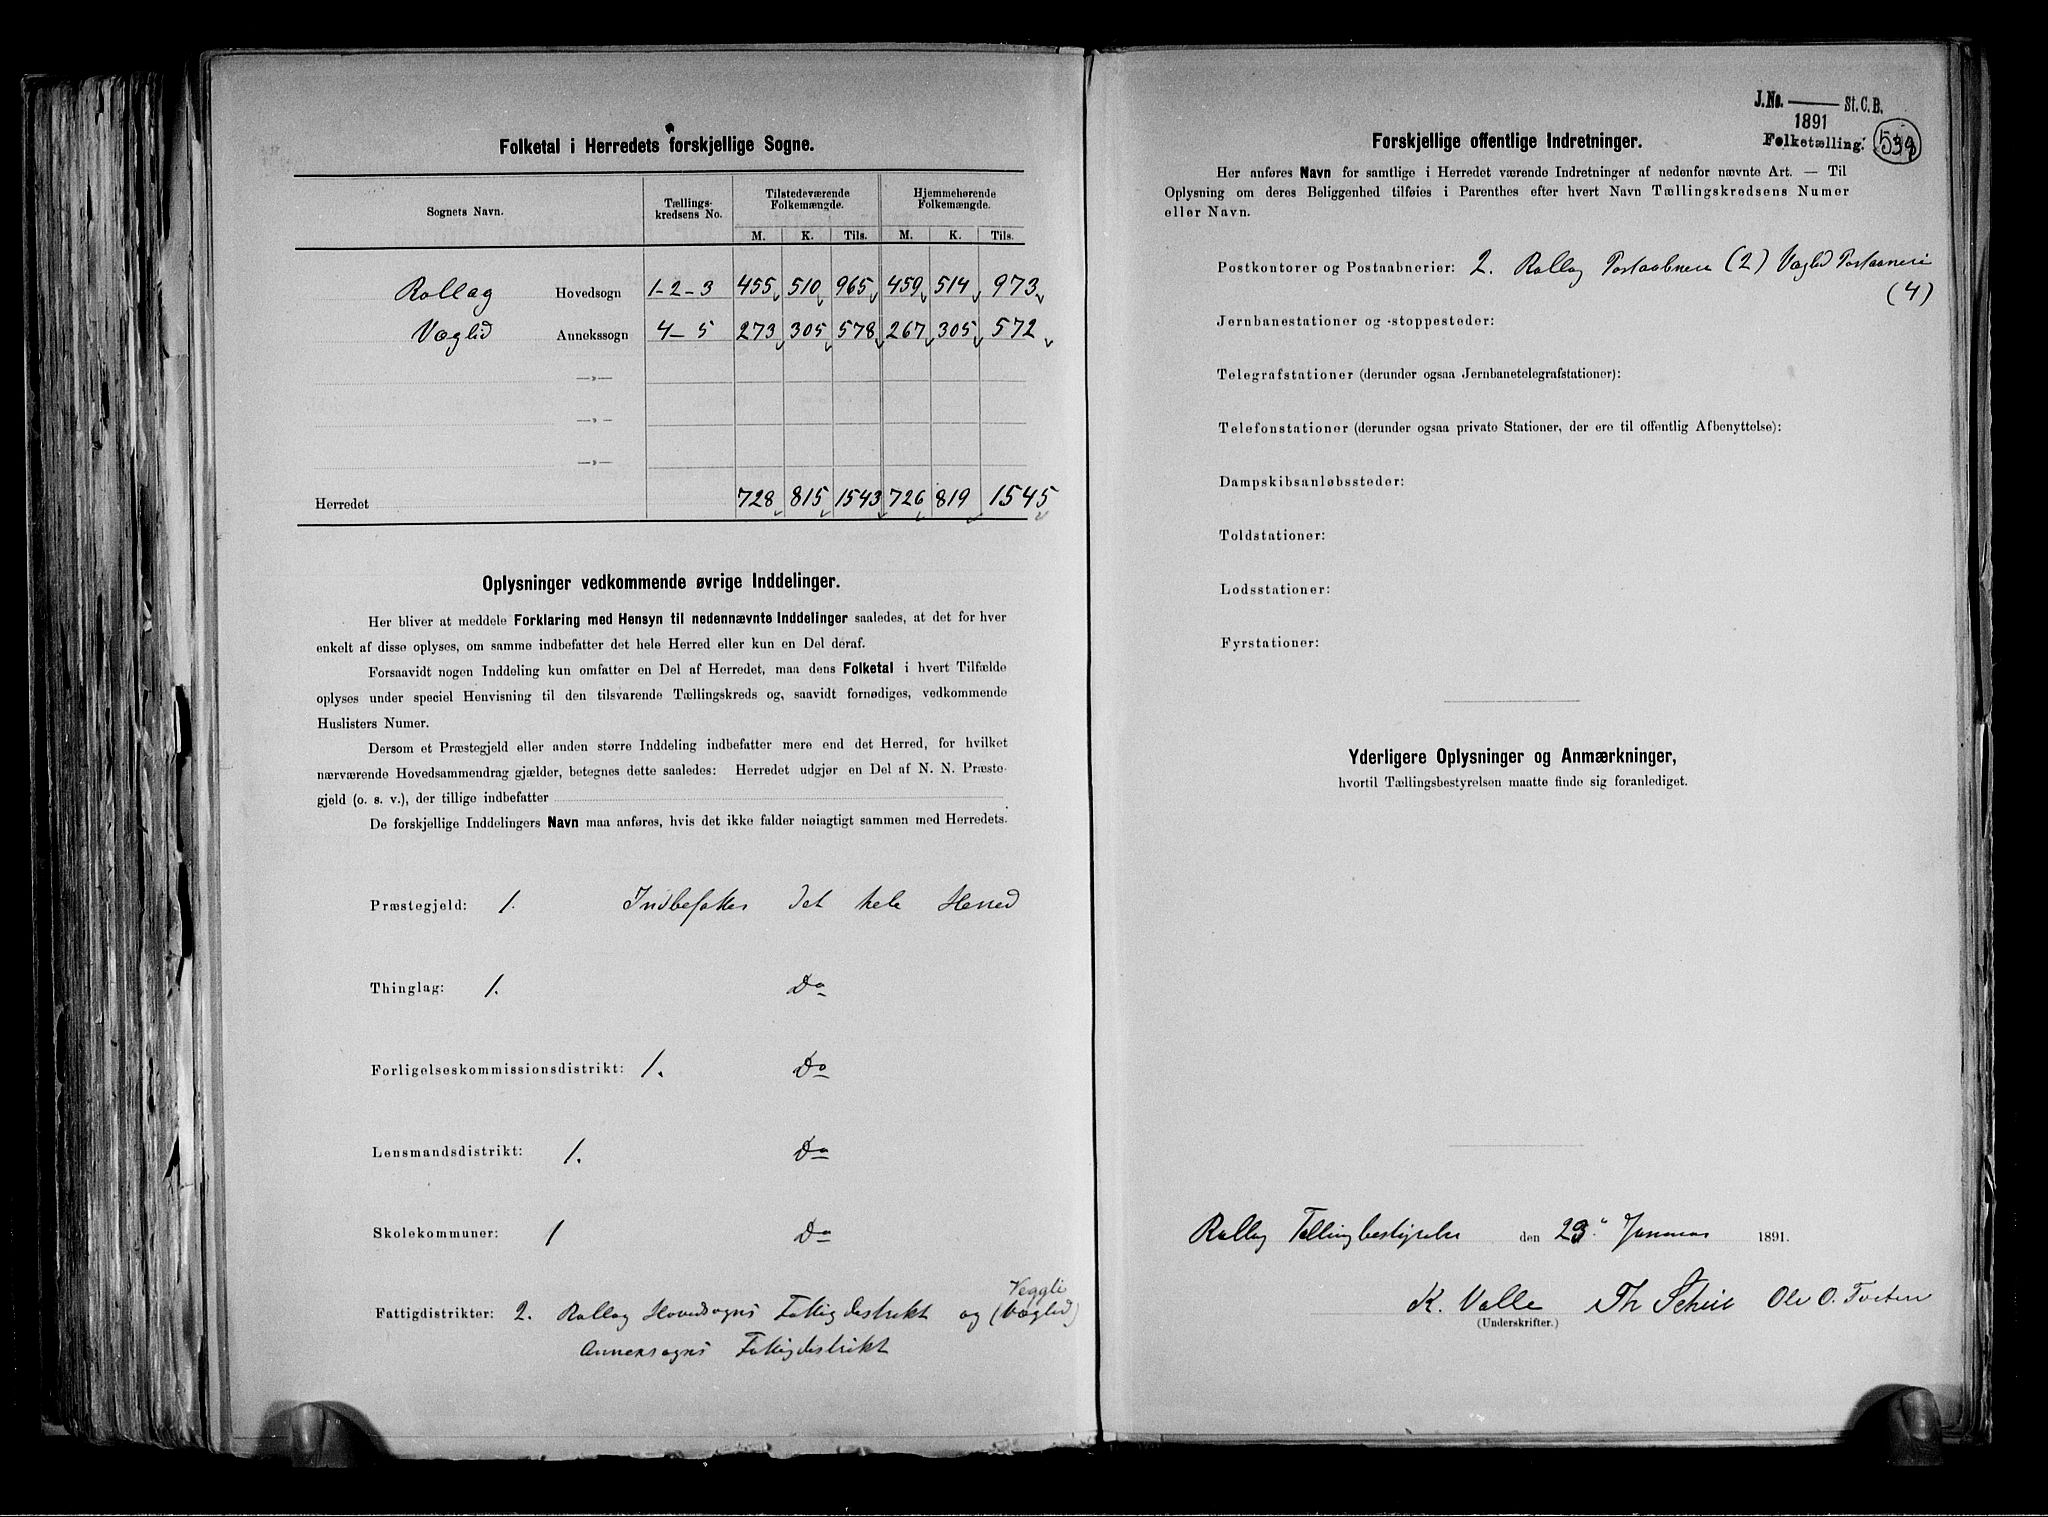 Folketal i Herredets forskjellige Sogne.
Sognets Navn. Tællings-kredsens No. Tilstedeværende Folkemængde. Hjemmehørende Folkemængde.
M. K. Tils. M. K. Tils.
Rollag Hovedsogn 1-2-3 455 510 965 459 514 973
Væglid Annekssogn 4-5 273 305 578 267 305 572
—»—
—»—
—»—
Herredet 728 815 1543 726 819 1545
Oplysninger vedkommende øvrige Inddelinger.
Her bliver at meddele Forklaring med Hensyn til nedennævnte Inddelinger saaledes, at det for hver
enkelt af disse oplyses, om samme indbefatter det hele Herred eller kun en Del deraf.
Forsaavidt nogen Inddeling kun omfatter en Del af Herredet, maa dens Folketal i hvert Tilfælde
oplyses under speciel Henvisning til den tilsvarende Tællingskreds og, saavidt fornødiges, vedkommende
Huslisters Numer.
Dersom et Præstegjeld eller anden større Inddeling indbefatter mere end det Herred, for hvilket
nærværende Hovedsammendrag gjælder, betegnes dette saaledes: Herredet udgjør en Del af N. N. Præste-
gjeld (o. s. v.), der tillige indbefatter
De forskjellige Inddelingers Navn maa anføres, hvis det ikke falder nøiagtigt sammen med Herredets.
Præstegjeld: 1. Indbefatter det hele Herred
Thinglag: 1. Do
Forligelseskommissionsdistrikt: 1. Do
Lensmandsdistrikt: 1. Do
Skolekommuner: 1 Do
Veggli
Fattigdistrikter: 2. Rollag Hovedsogns Fattigdistrikt og (Væglid)
Annexsogns Fattigdistrikt
J.No. St.C.B.
1891
Folketælling.
Forskjellige offentlige Indretninger.
Her anføres Navn for samtlige i Herredet værende Indretninger af nedenfor nævnte Art. — Til
Oplysning om deres Beliggenhed tilføies i Parenthes efter hvert Navn Tællingskredsens Numer
eller Navn.
Postkontorer og Postaabnerier: 2. Rollag Postaabneri (2) Væglid Postaaneri
(4)
Jernbanestationer og -stoppesteder:
Telegrafstationer (derunder ogsaa Jernbanetelegrafstationer):
Telefonstationer (derunder ogsaa private Stationer, der ere til offentlig Afbenyttelse):
Dampskibsanløbssteder:
Toldstationer:
Lodsstationer:
Fyrstationer:
Yderligere Oplysninger og Anmærkninger,
hvortil Tællingsbestyrelsen maatte finde sig foranlediget.
Rollag Tællingbestyrelse den 23 Januar 1891.
K. Valle Th Ole O. Tveten
(Underskrifter.)